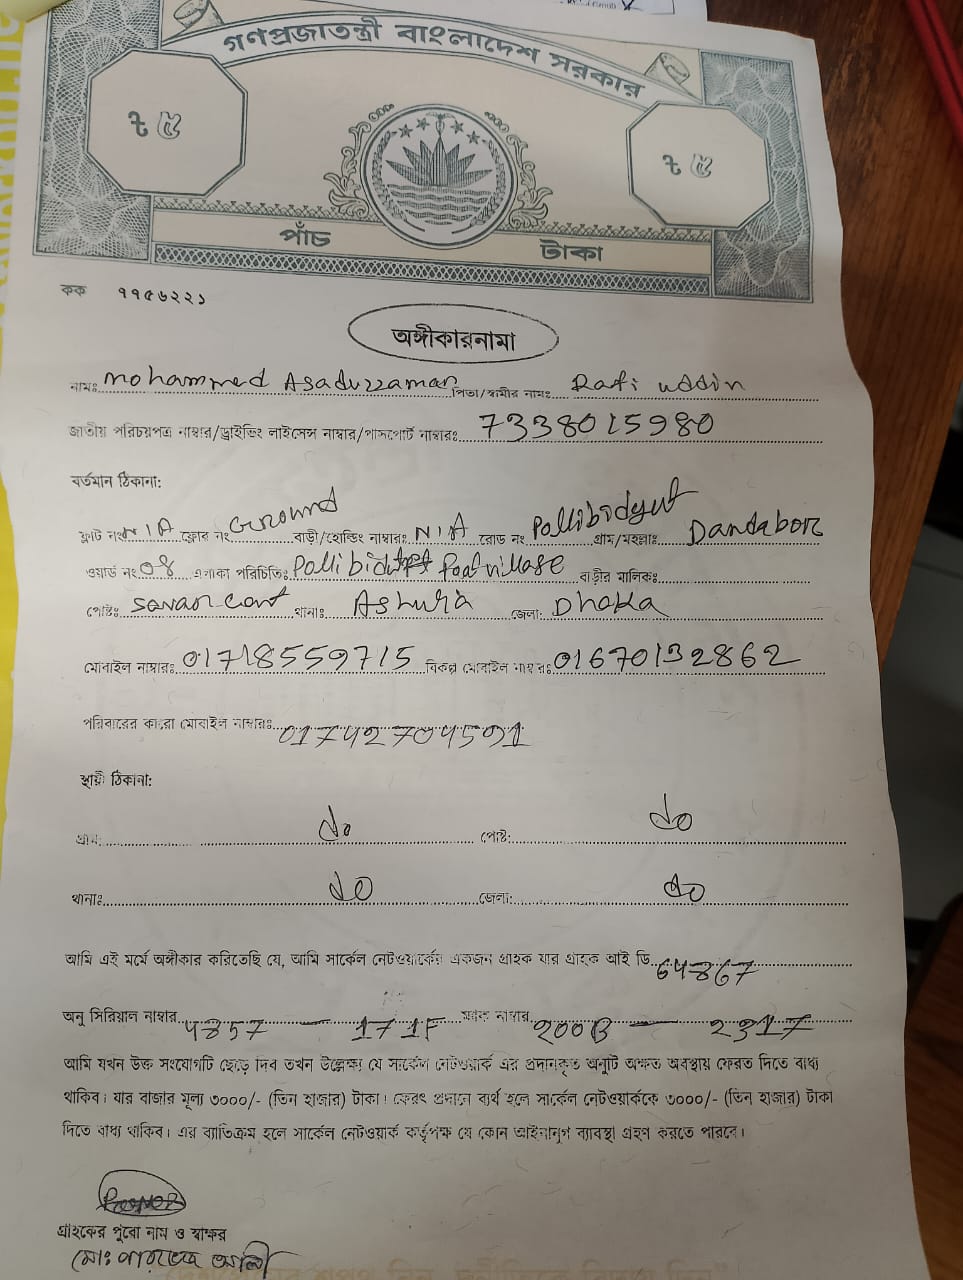 গণপ্রজাতন্ত্রী বাংলাদেশ সরকার
৳ ৫ ৳ ৫
পাঁচ টাকা
কক ৭৭৫৬২২১
অঙ্গীকারনামা
নামঃ Mohammed Asaduzzaman পিতা/স্বামীর নামঃ Rafi uddin
জাতীয় পরিচয়পত্র নাম্বার/ড্রাইভিং লাইসেন্স নাম্বার/পাসপোর্ট নাম্বারঃ 7338015980
বর্তমান ঠিকানা:
ফ্লাট নংঃ N/A ফ্লোর নং Ground বাড়ী/হোল্ডিং নাম্বারঃ N/A রোড নং Pallibidyut গ্রাম/মহল্লাঃ Dandabor
ওয়ার্ড নং 08 এলাকা পরিচিতিঃ Palli village বাড়ীর মালিকঃ
পোষ্টঃ Savar cant থানাঃ Ashulia জেলা: Dhaka
মোবাইল নাম্বারঃ 01718559715 বিকল্প মোবাইল নাম্বারঃ 01670132862
পরিবারের কারো মোবাইল নাম্বারঃ 01742704591
স্থায়ী ঠিকানা:
গ্রাম: do পোষ্ট: do
থানাঃ do জেলা: do
আমি এই মর্মে অঙ্গীকার করিতেছি যে, আমি সার্কেল নেটওয়ার্কের একজন গ্রাহক যার গ্রাহক আই ডি 64867
অনু সিরিয়াল নাম্বার 4857 — 171F ম্যাক নাম্বার 200B — 2317
আমি যখন উক্ত সংযোগটি ছেড়ে দিব তখন উল্লেক্ষ্য যে সার্কেল নেটওয়ার্ক এর প্রদানকৃত অনুটি অক্ষত অবস্থায় ফেরত দিতে বাধ্য
থাকিব। যার বাজার মূল্য ৩০০০/- (তিন হাজার) টাকা। ফেরৎ প্রদানে ব্যর্থ হলে সার্কেল নেটওয়ার্ককে ৩০০০/- (তিন হাজার) টাকা
দিতে বাধ্য থাকিব। এর ব্যাতিক্রম হলে সার্কেল নেটওয়ার্ক কর্তৃপক্ষ যে কোন আইনানুগ ব্যাবস্থা গ্রহণ করতে পারবে।
গ্রাহকের পুরো নাম ও স্বাক্ষর
মোঃ আলী